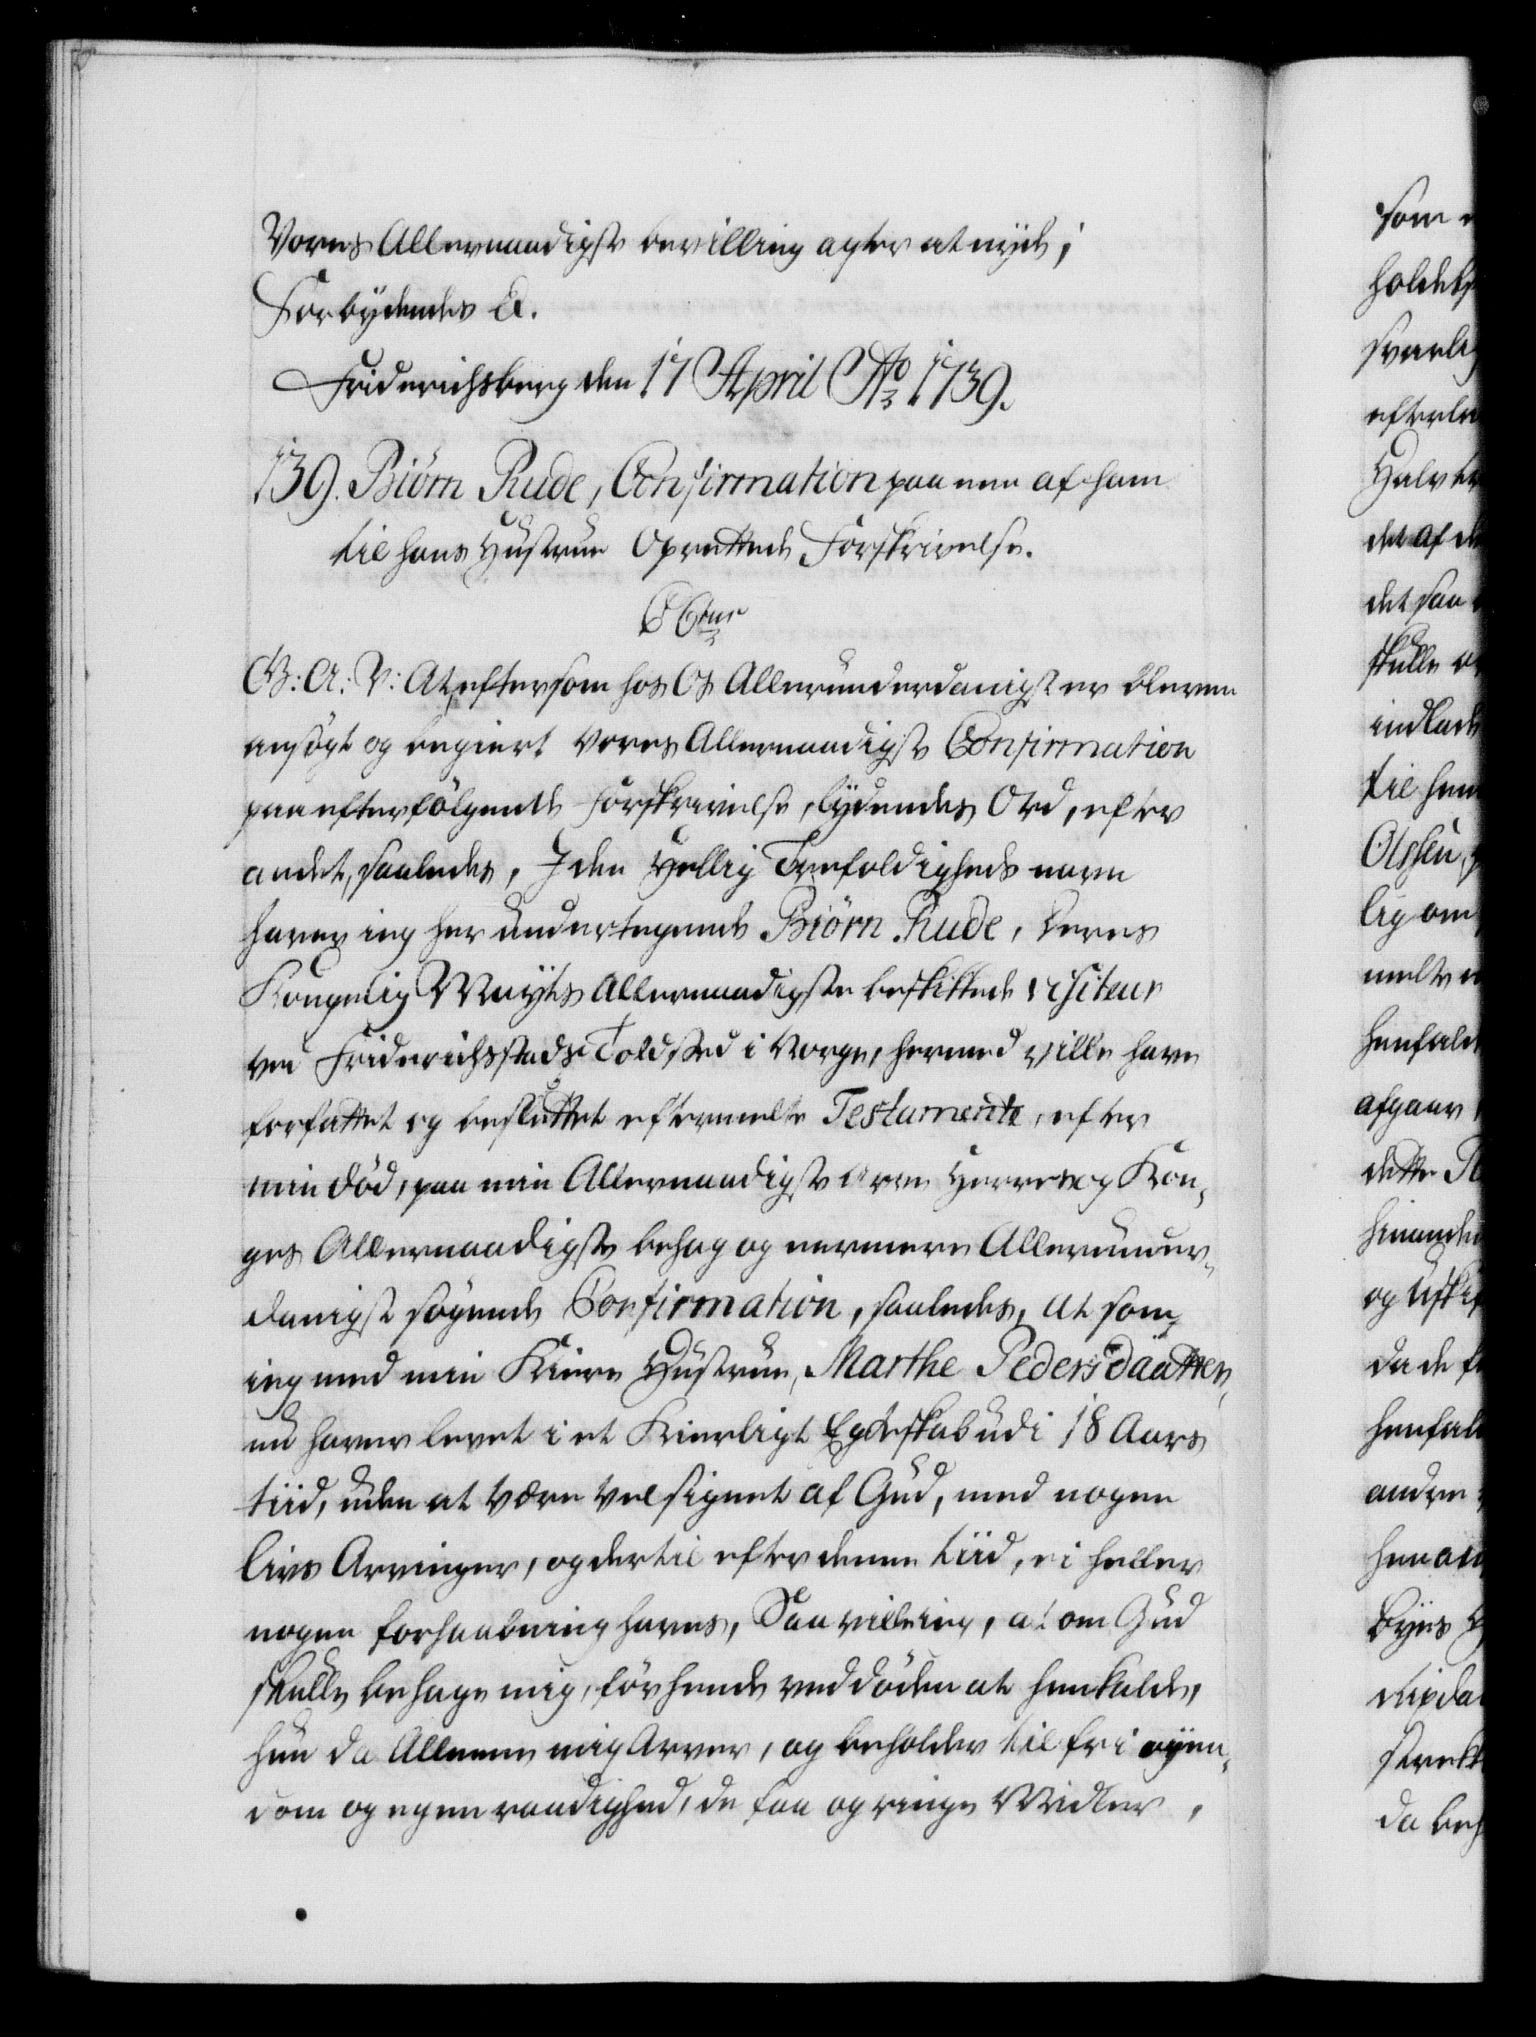 Vores Allernaadigste bevilling agter at nyde;
Forbydendes &.
Friderichsberg den 17 April Ao 1739.
139. Biörn Rude, Confirmation paa een af ham
til hans Hustrue Oprettede Forskrivelse.
C Ctus
G: A: V: At, eftersom hos Os Allerunderdanigst er bleven
ansögt og begiert Vores Allernaadigste Confirmation
paa efterfölgende forskrivelse, lydendes Ord, efter
andet, saaledes, I den Hellig Trefoldigheds navn
haver ieg her undertegnede Biörn Rude, Deres
Kongelig Mayts Allernaadigste beskikkede visiteur
ved Friderichsstads Toldsted i Norge, hermed ville have
forfattet og besluttet eftermelte Testamente, efter
min död, paa min Allernaadigste Arve Herres og Kon,
ges Allernaadigste behag og nermere Allerunder,
danigst sögende Confirmation, saaledes, at som
ieg med min Kiere Hustrue, Marthe Pedersdaatter,
nu haver levet i et Kierligt Egteskab udi 18 Aars
tiid, uden at være velsignet af Gud, med nogen
livs Arvinger, og dertil efter denne tiid, ei heller
nogen forhaabning haves, Saa vil ieg, at om Gud
skulle behage mig, för hende ved döden at henkalde,
hun da Alleene mig Arver, og beholder til fri eyen,
dom og egen raadighed, de faa og ringe Midler,
som
holdels
svarlig
efterla
Halv
det af de
det saa
skulle
indlade
til hen
Olssen,
lig om
melte
henfald
afgaar
dette
hinanden
og
da de
henfal
andre
hen
Byes
da
strekk
da beh